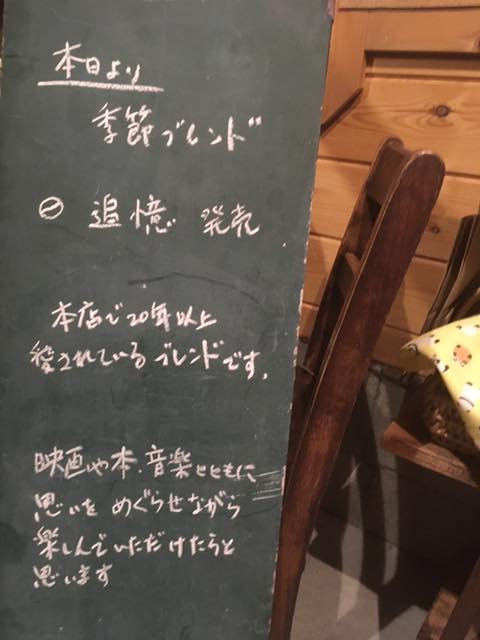 本日より
季節ブレンド
追憶 発売
本店で20年以上
愛されているブレンドです。
映画や本、音楽とともに
思いをめぐらせながら
楽しんでいただけたらと
思います